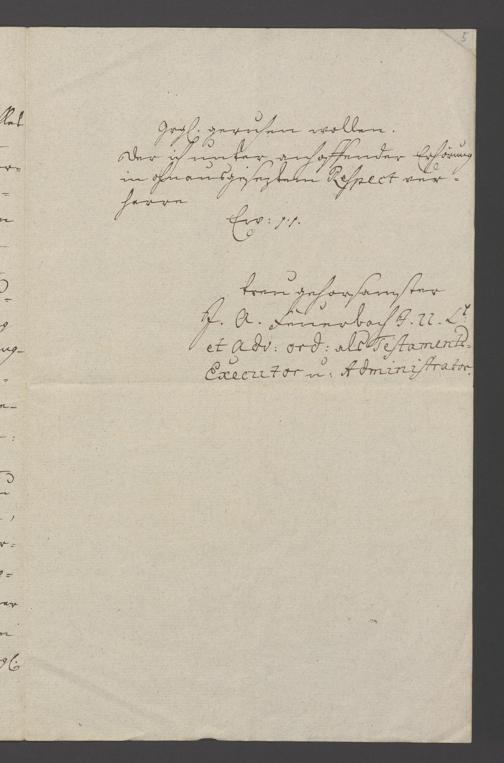 5
grgl. geruhen wollen.
Der ich unter anhoffender Erhörung
in ohnausgeseztem Respect ver-
harre
Ew: p.p.
treu gehorsamster
J. A. Feuerbach J. U. Lt.
et Adv: ord: als Testaments-
Executor u: Administrator.